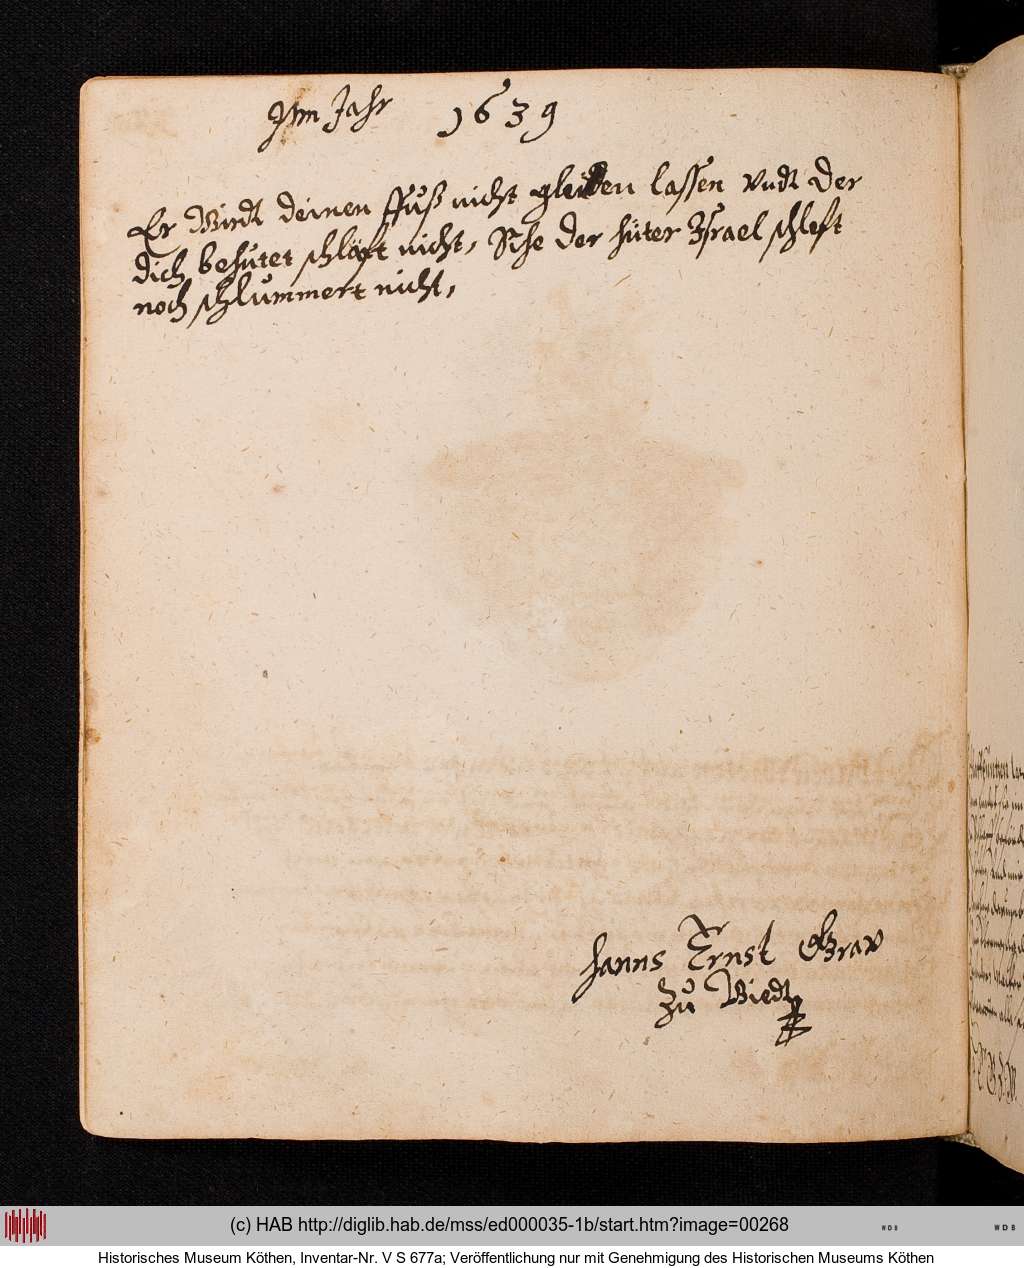 Im Jahr 1639
Er Wirdt deinen ffuß nicht gleiten lassen vndt Der
dich behütet schläft nicht, Sihe der hüter Israel schleft
noch schlummert nicht,
hanns Ernst Grav
zu Wiedt
(c) HAB http://diglib.hab.de/mss/ed000035-1b/start.htm?image=00268
WDB
WDB
Historisches Museum Köthen, Inventar-Nr. V S 677a; Veröffentlichung nur mit Genehmigung des Historischen Museums Köthen